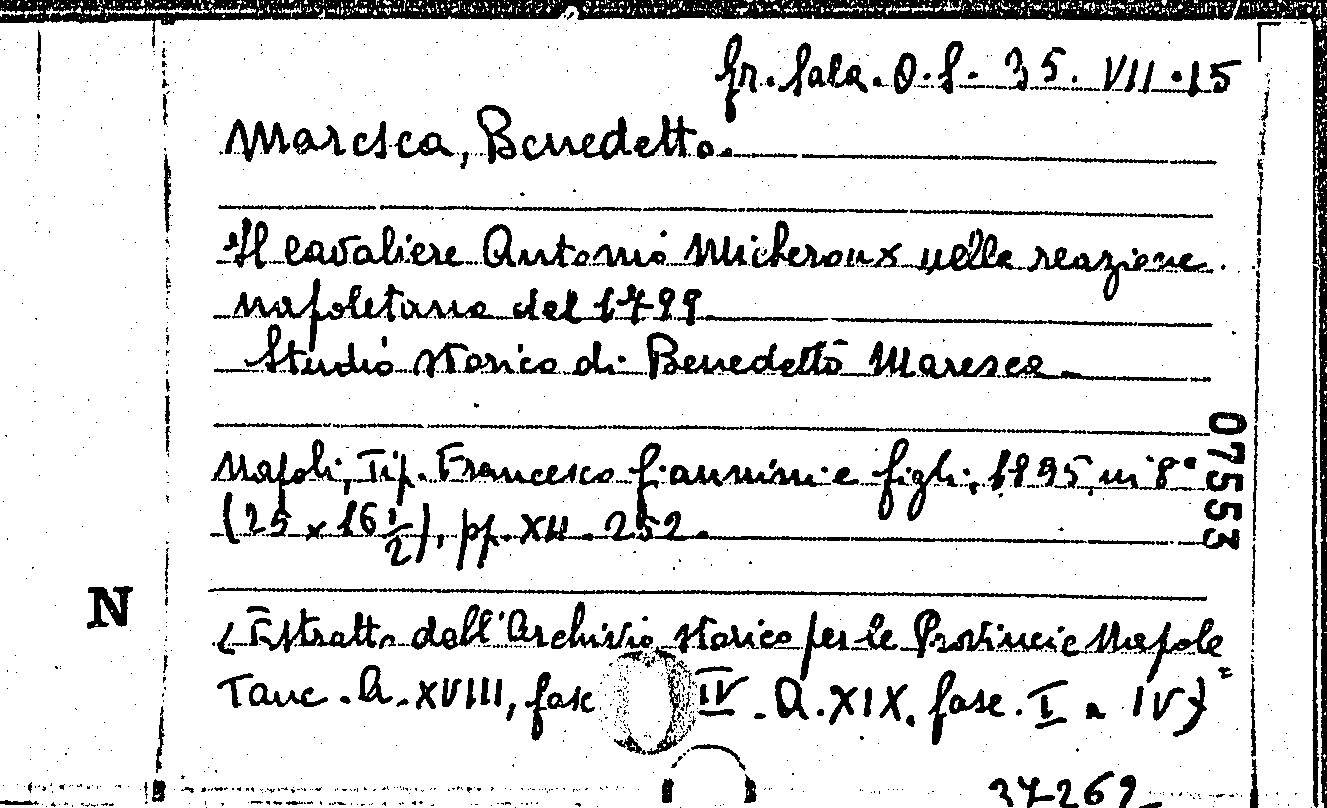 Gr. Sala. O.S. 35. VII. 15
Maresca, Benedetto.
Il cavaliere Antonio Micheroux nella reazione
napoletana del 1799
Studio storico di Benedetto Maresca.
Napoli, Tip. Francesco Giannini e figli, 1895, in 8°
(25 x 16 1/2), pp. XII. 252.
(Estratto dall'Archivio storico per le Provincie Napole=
tane. A. XVIII, fasc IV. A. XIX. fasc. I a IV)
37269
07553
N